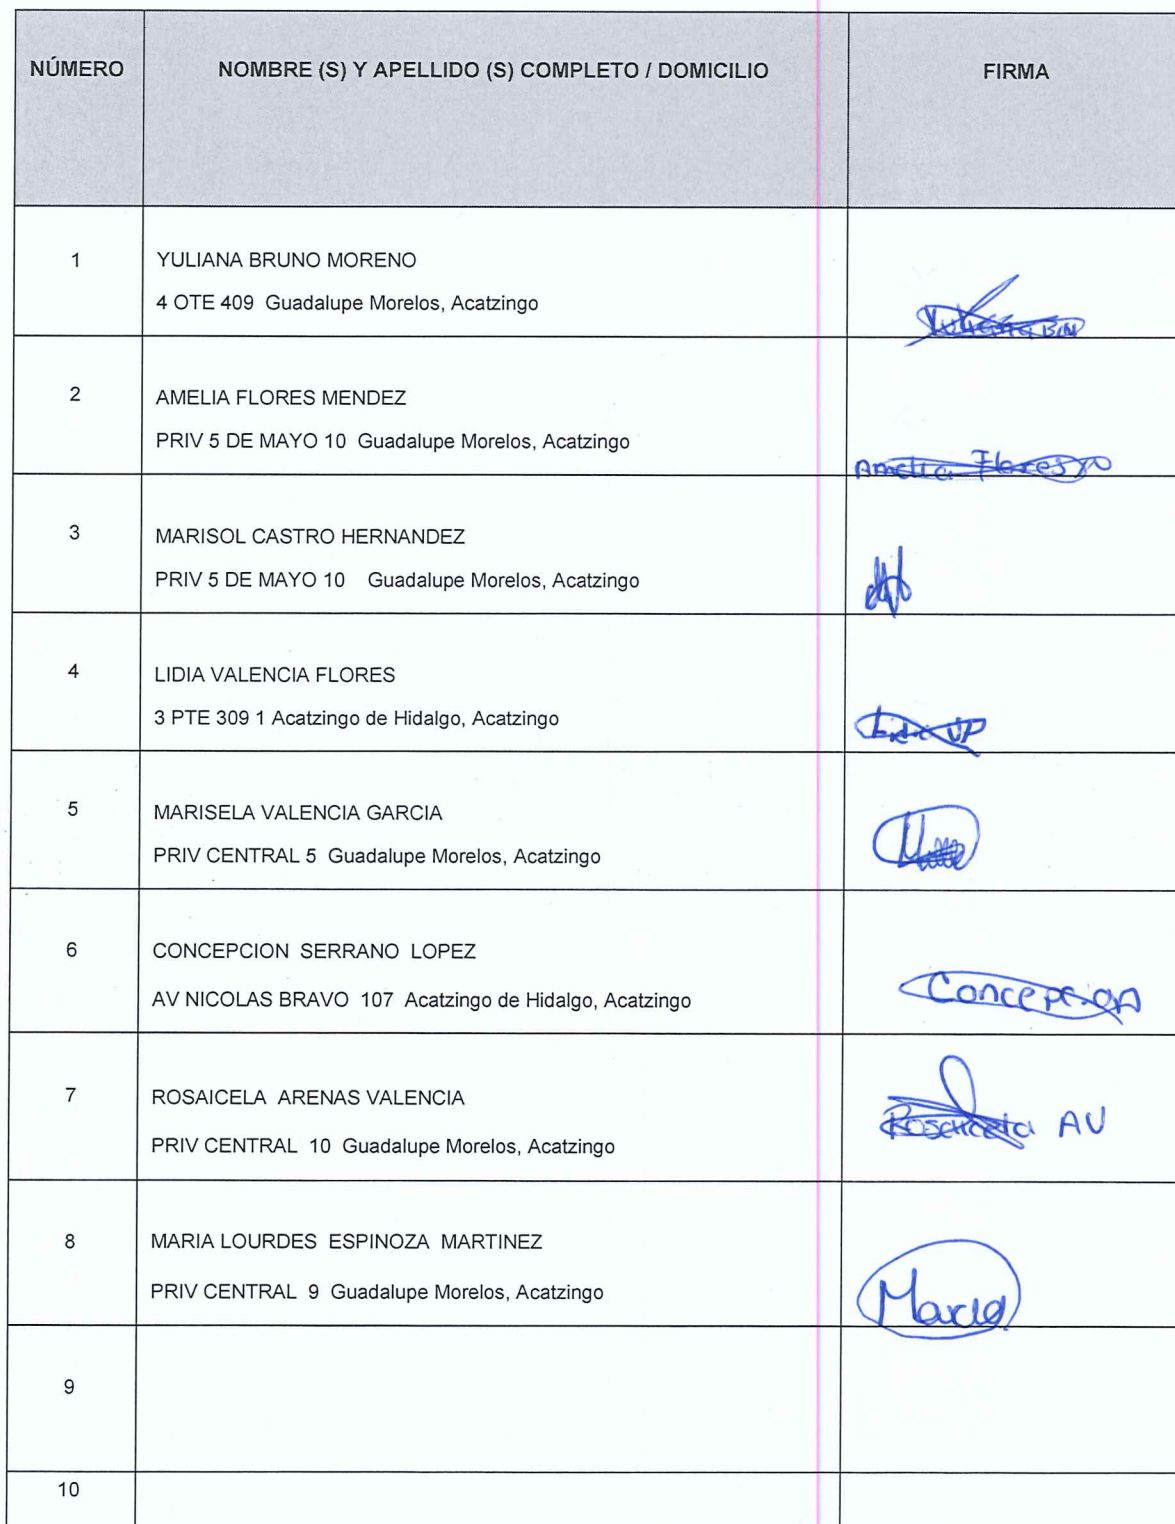 NÚMERO NOMBRE (S) Y APELLIDO (S) COMPLETO / DOMICILIO FIRMA
1 YULIANA BRUNO MORENO
4 OTE 409 Guadalupe Morelos, Acatzingo
Yuliana BM
2 AMELIA FLORES MENDEZ
PRIV 5 DE MAYO 10 Guadalupe Morelos, Acatzingo
Amelia Flores
3 MARISOL CASTRO HERNANDEZ
PRIV 5 DE MAYO 10 Guadalupe Morelos, Acatzingo
4 LIDIA VALENCIA FLORES
3 PTE 309 1 Acatzingo de Hidalgo, Acatzingo
Lidia VP
5 MARISELA VALENCIA GARCIA
PRIV CENTRAL 5 Guadalupe Morelos, Acatzingo
6 CONCEPCION SERRANO LOPEZ
AV NICOLAS BRAVO 107 Acatzingo de Hidalgo, Acatzingo
Concepcion
7 ROSAICELA ARENAS VALENCIA
PRIV CENTRAL 10 Guadalupe Morelos, Acatzingo
Rosaicela AV
8 MARIA LOURDES ESPINOZA MARTINEZ
PRIV CENTRAL 9 Guadalupe Morelos, Acatzingo
Maria
9
10